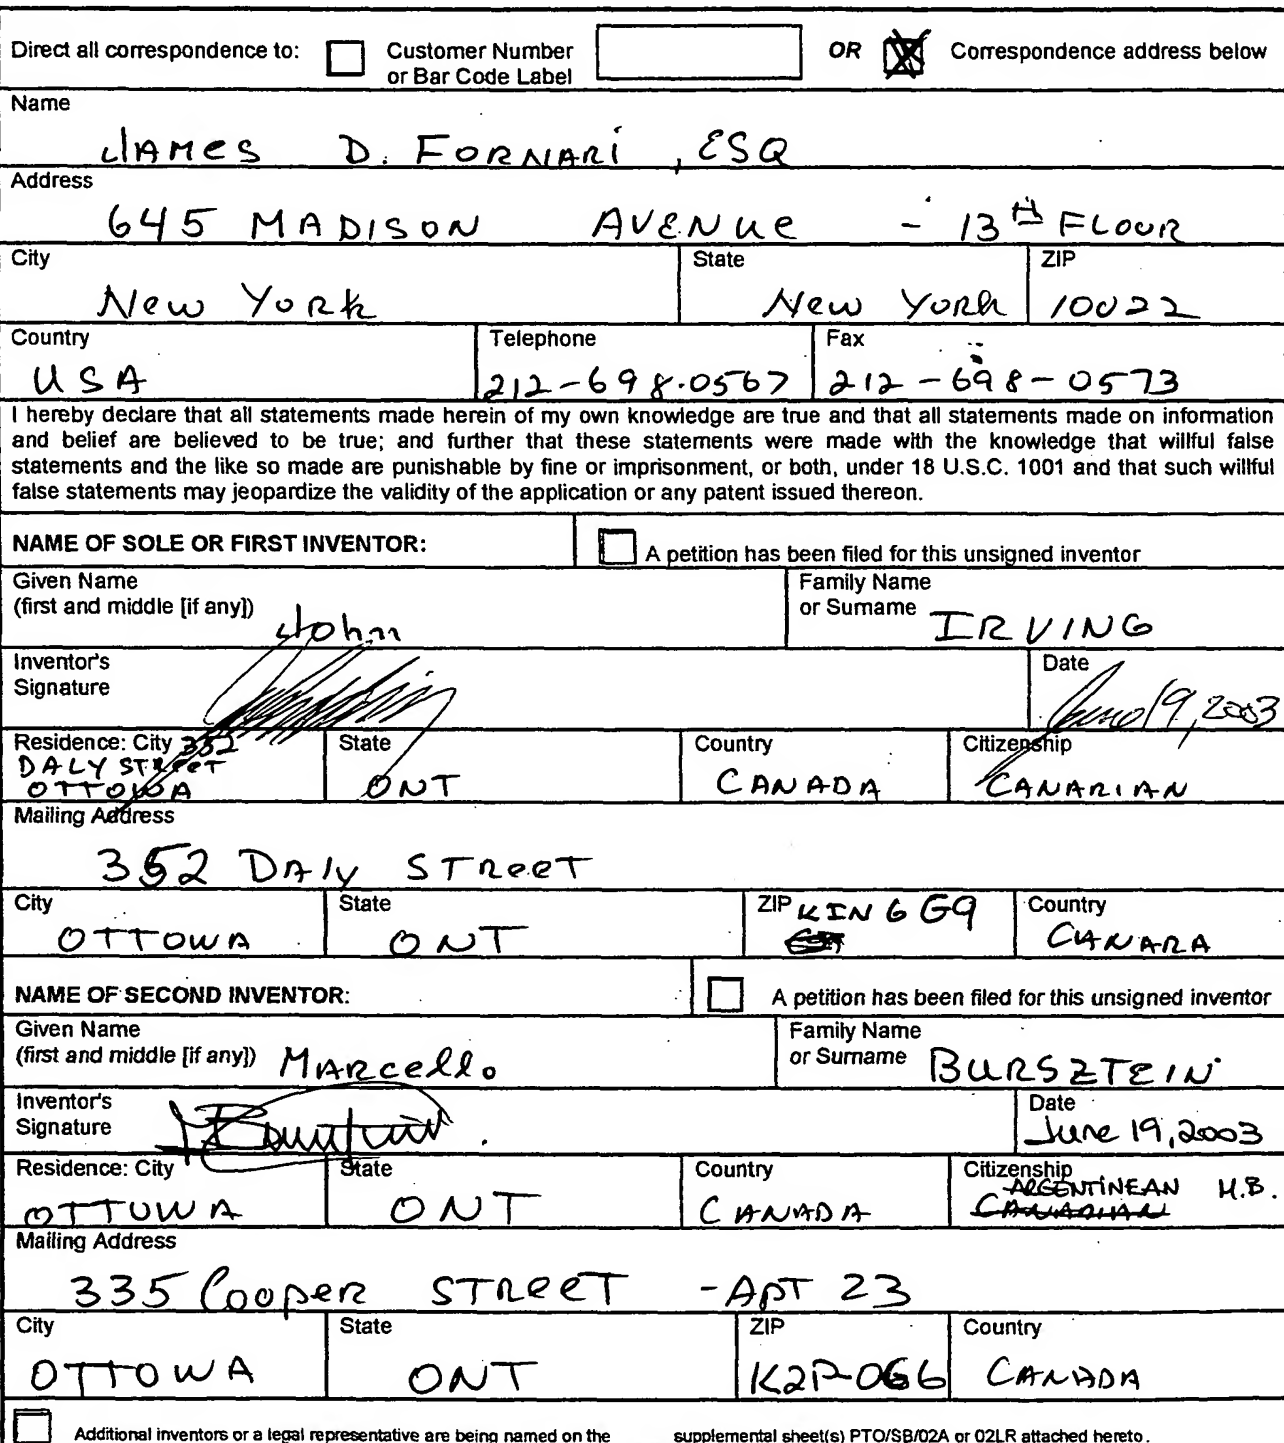 Direct all correspondence to: Customer Number or Bar Code Label OR Correspondence address below
Name
JAMES D. FORNARI, ESQ
Address
645 MADISON AVENUE - 13TH FLOOR
City State ZIP
New York New York 10022
Country Telephone Fax
USA 212-698-0567 212-698-0573
I hereby declare that all statements made herein of my own knowledge are true and that all statements made on information
and belief are believed to be true; and further that these statements were made with the knowledge that willful false
statements and the like so made are punishable by fine or imprisonment, or both, under 18 U.S.C. 1001 and that such willful
false statements may jeopardize the validity of the application or any patent issued thereon.
NAME OF SOLE OR FIRST INVENTOR: A petition has been filed for this unsigned inventor
Given Name
(first and middle [if any]) John
Family Name
or Surname IRVING
Inventor's
Signature
Date
June 19, 2003
Residence: City 352
DALY STREET
OTTOWA
State
ONT
Country
CANADA
Citizenship
CANARIAN
Mailing Address
352 DALY STREET
City State ZIP KIN 6G9 Country
OTTOWA ONT CANARA
NAME OF SECOND INVENTOR: A petition has been filed for this unsigned inventor
Given Name
(first and middle [if any]) MARCello
Family Name
or Surname BURSZTEIN
Inventor's
Signature
Date
June 19, 2003
Residence: City State Country Citizenship
ARGENTINEAN M.B.
OTTUWA ONT CANADA CANADIAN
Mailing Address
335 Cooper STREET - APT 23
City State ZIP Country
OTTOWA ONT K2P-0G6 CANADA
Additional inventors or a legal representative are being named on the supplemental sheet(s) PTO/SB/02A or 02LR attached hereto.